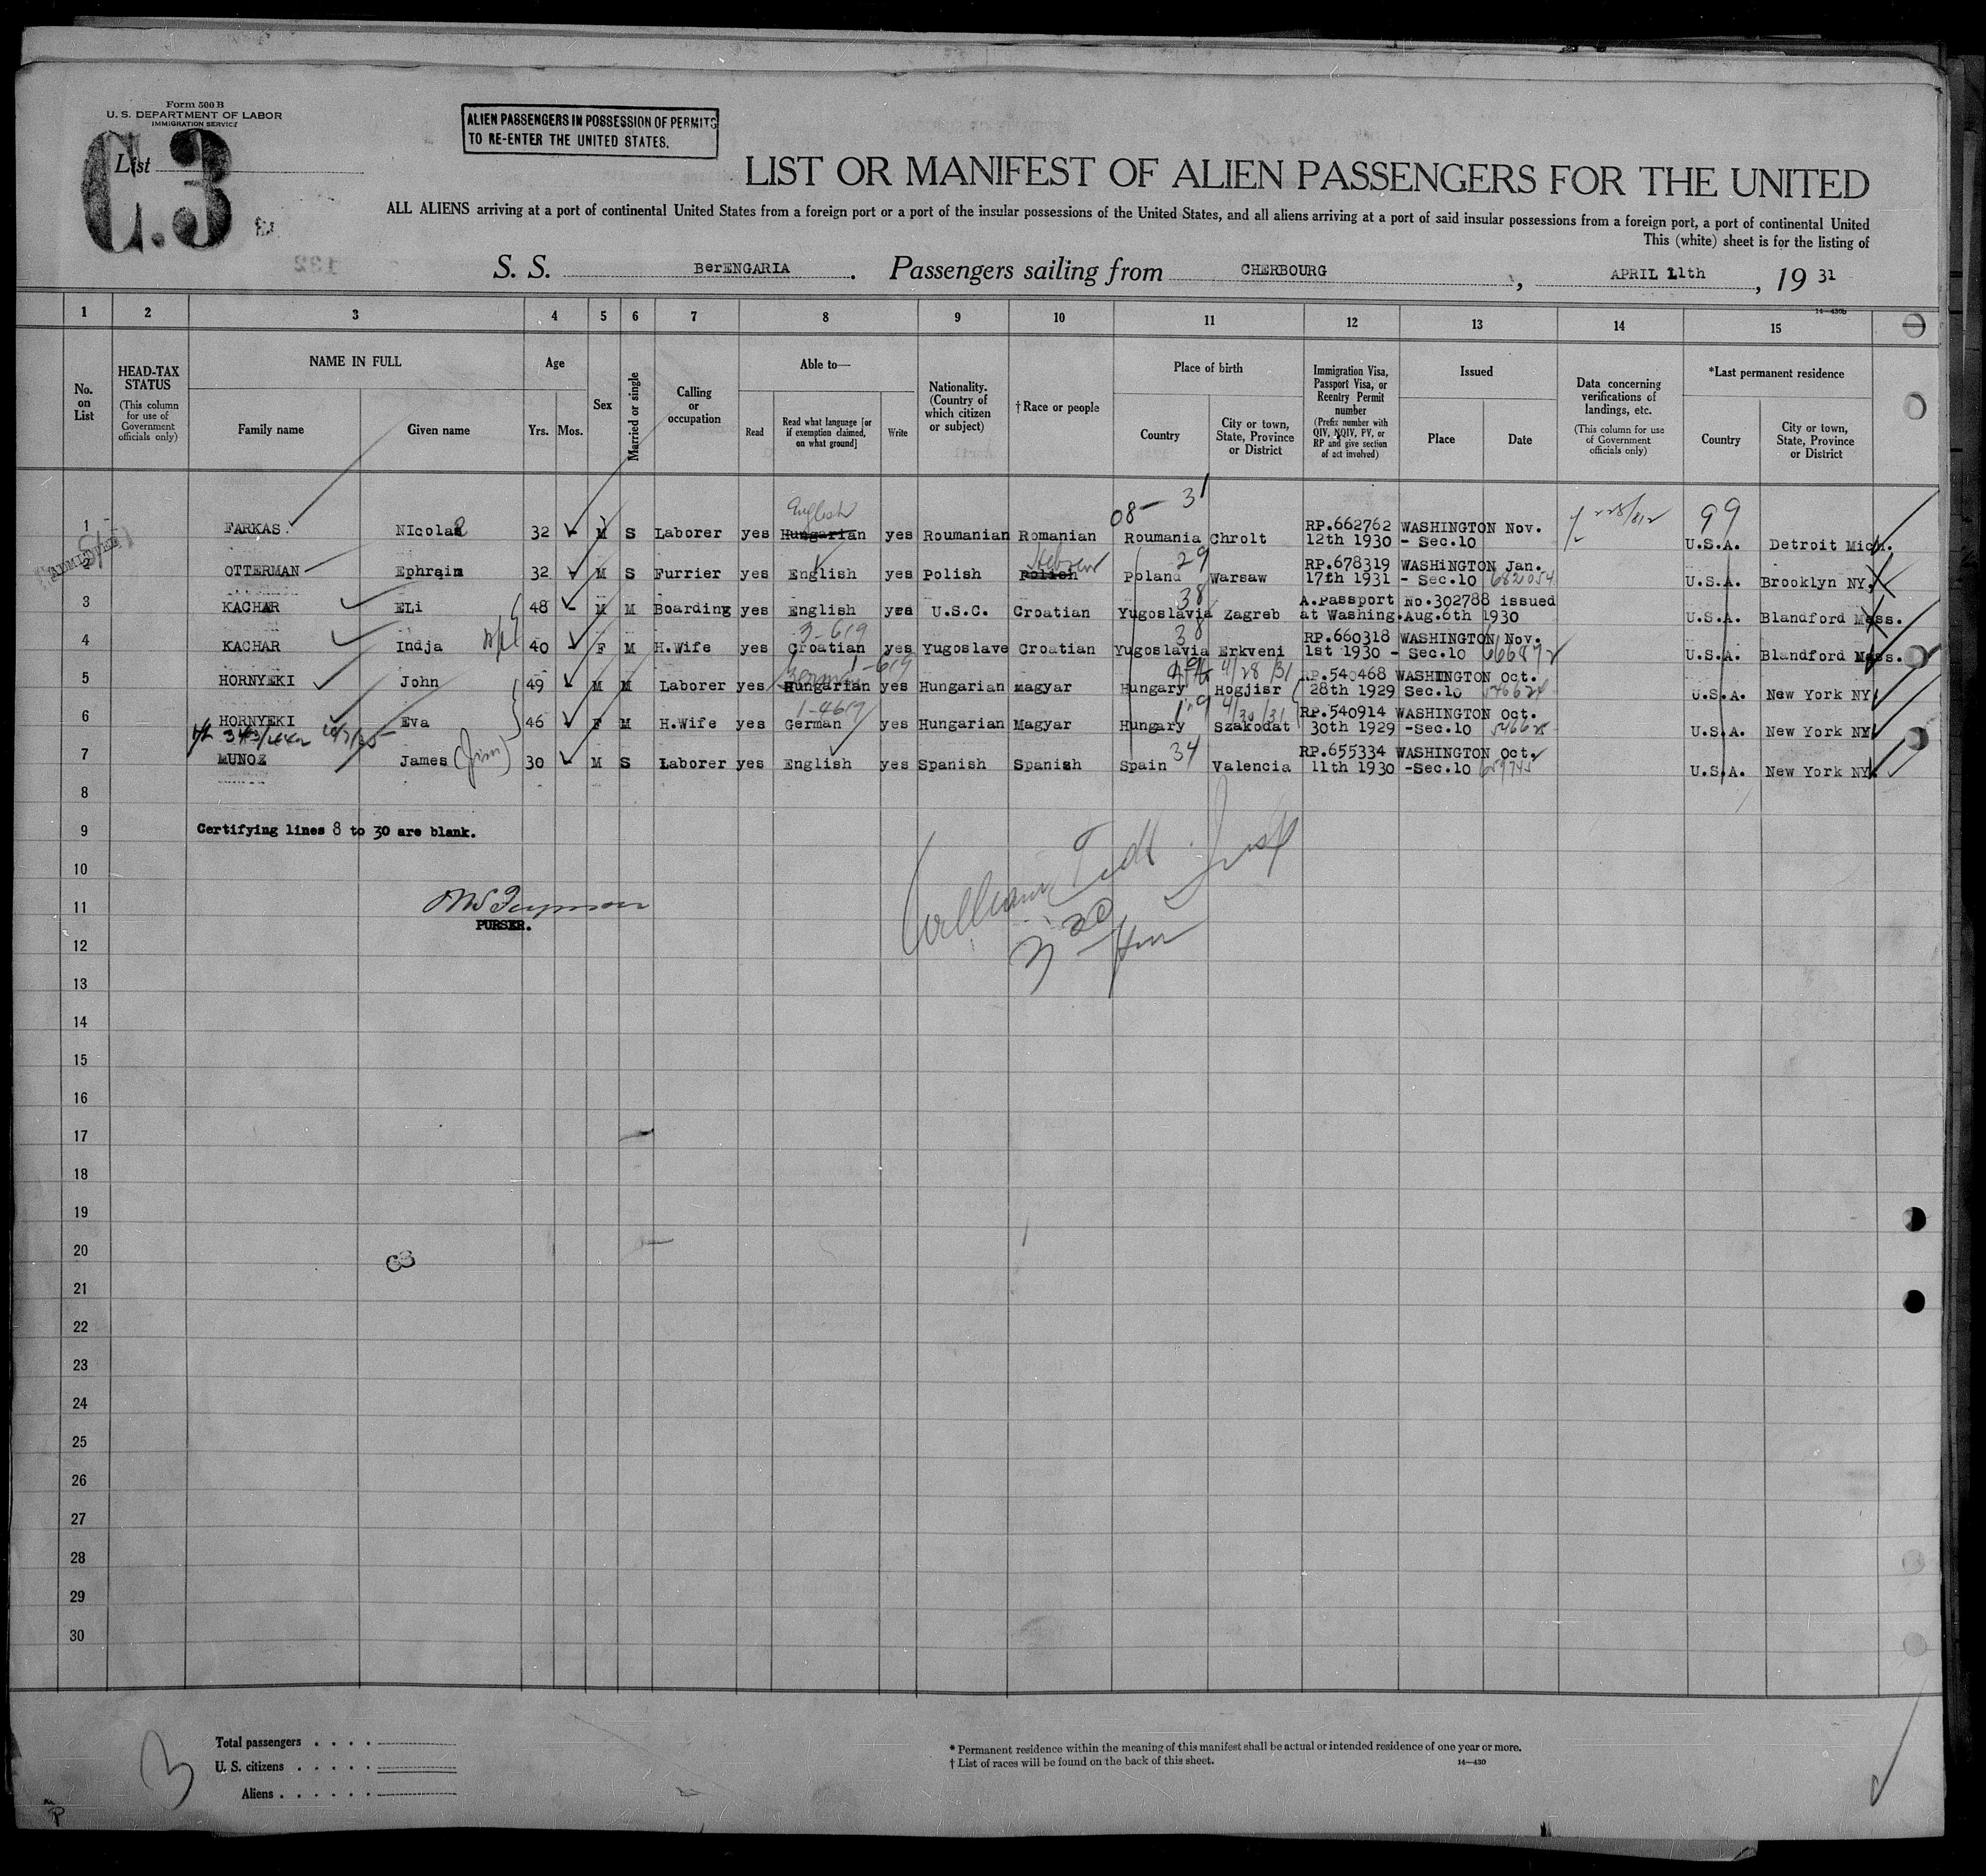 Form 500 B
U. S. DEPARTMENT OF LABOR
IMMIGRATION SERVICE
List
C.3
ALIEN PASSENGERS IN POSSESSION OF PERMITS
TO RE-ENTER THE UNITED STATES.
LIST OR MANIFEST OF ALIEN PASSENGERS FOR THE UNITED
ALL ALIENS arriving at a port of continental United States from a foreign port or a port of the insular possessions of the United States, and all aliens arriving at a port of said insular possessions from a foreign port, a port of continental United
This (white) sheet is for the listing of
S. S. BerENGARIA. Passengers sailing from CHERBOURG, APRIL 11th, 19 31
14—430b
1 2 3 4 5 6 7 8 9 10 11 12 13 14 15
No. on List
HEAD-TAX STATUS
(This column for use of Government officials only)
NAME IN FULL
Family name Given name
Age
Yrs. Mos.
Sex
Married or single
Calling or occupation
Able to—
Read
Read what language [or if exemption claimed, on what ground]
Write
Nationality. (Country of which citizen or subject)
† Race or people
Place of birth
Country
City or town, State, Province or District
Immigration Visa, Passport Visa, or Reentry Permit number
(Prefix number with QIV, NQIV, PV, or RP and give section of act involved)
Issued
Place Date
Data concerning verifications of landings, etc.
(This column for use of Government officials only)
*Last permanent residence
Country
City or town, State, Province or District
English 08- 31 99
1 FARKAS. NIcolae 32 - M S Laborer yes Hungarian yes Roumanian Romanian Roumania Chrolt RP.662762 WASHINGTON Nov. 12th 1930 - Sec.10 U.S.A. Detroit Mich.
ADMITTED
Hebrew 29
2 OTTERMAN Ephraim 32 - M S Furrier yes English yes Polish Polish Poland Warsaw RP.678319 WASHINGTON Jan. 17th 1931 - Sec.10 682054 U.S.A. Brooklyn NY.
38
3 KACHAR ELi 48 - M M Boarding yes English yes U.S.C. Croatian Yugoslavia Zagreb A.Passport No.302788 issued at Washing.Aug.6th 1930 U.S.A. Blandford Mass.
3-619 38
4 KACHAR Indja 40 F M H.Wife yes Croatian yes Yugoslave Croatian Yugoslavia Erkveni RP.660318 WASHINGTON Nov. 1st 1930 - Sec.10 666872 U.S.A. Blandford Mass.
German 1-619 4/28/31
5 HORNYEKI John 49 - M M Laborer yes Hungarian yes Hungarian magyar Hungary Hogjisr RP.540468 WASHINGTON Oct. 28th 1929 Sec.10 U.S.A. New York NY.
1-4619 4/30/31
6 HORNYEKI Eva 46 F M H.Wife yes German yes Hungarian Magyar Hungary Szakodat RP.540914 WASHINGTON Oct. 30th 1929 -Sec.10 U.S.A. New York NY.
34
7 MUNOZ James (Jim) 30 - M S Laborer yes English yes Spanish Spanish Spain Valencia RP.655334 WASHINGTON Oct. 11th 1930 -Sec.10 659745 U.S.A. New York NY.
8
9 Certifying lines 8 to 30 are blank.
10
11
PURSER.
12
13
14
15
16
17
18
19
20
C3
21
22
23
24
25
26
27
28
29
30
Total passengers . . . .
U. S. citizens . . . . .
Aliens . . . . . .
3
* Permanent residence within the meaning of this manifest shall be actual or intended residence of one year or more.
† List of races will be found on the back of this sheet.
14—430